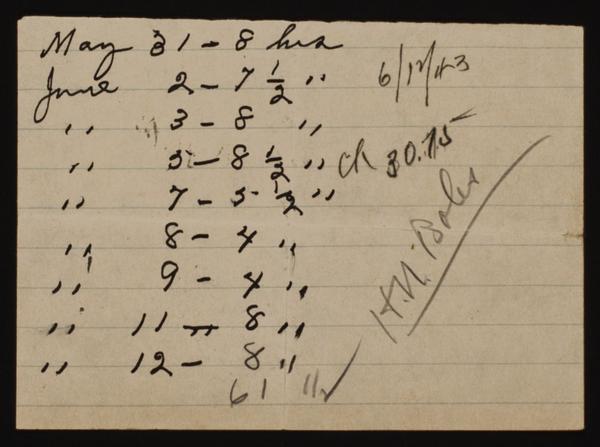 May 31 - 8 hrs
June 2 - 7 1/2 ,,
6/12/43
,, 3 - 8 ,,
,, 5 - 8 1/2 ,,
ck 30.75
,, 7 - 5 1/2 ,,
,, 8 - 4 ,,
,, 9 - 4 ,,
,, 11 - 8 ,,
,, 12 - 8 ,,
61 1/2
H.N.